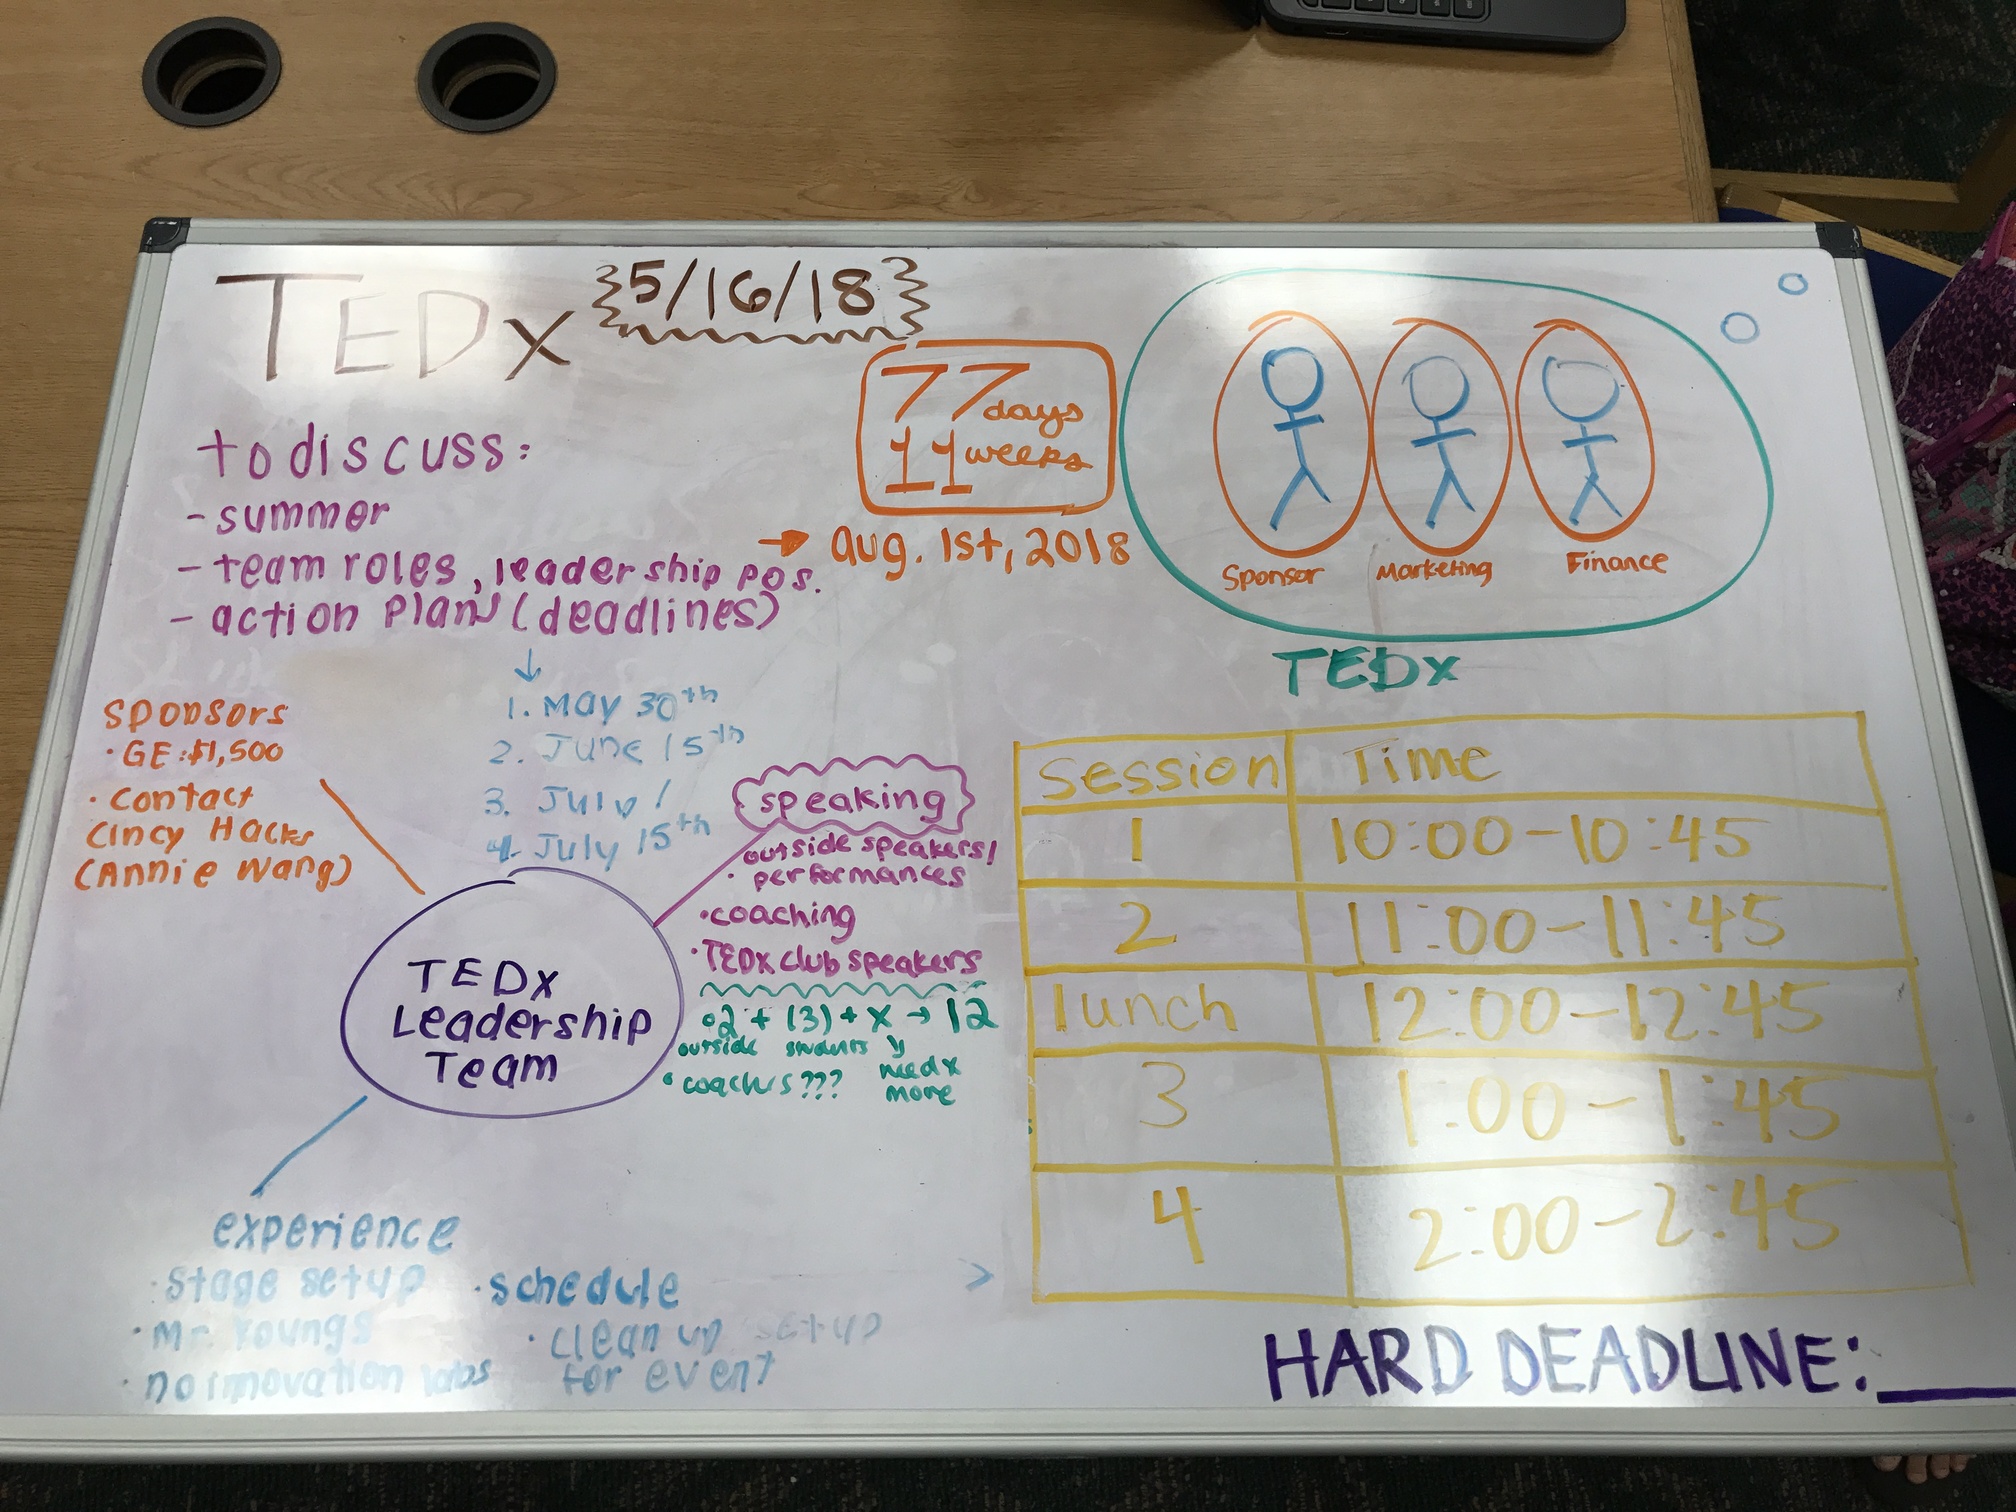 TEDx
5/16/18
77 days
11 weeks
→ aug. 1st, 2018
to discuss:
- summer
- team roles, leadership pos.
- action plan (deadlines)
↓
1. May 30th
2. June 15th
3. July 1
4. July 15th
Sponsor
Marketing
Finance
TEDx
sponsors
· GE: $1,500
· contact
Cincy Hacks
(Annie Wang)
speaking
outside speakers/
· performances
· coaching
· TEDx club speakers
· 2 + (3) + x → 12
outside students
need x
more
· coaches???
TEDx
Leadership
Team
experience
· stage setup
· Mr. Youngs
· no innovation labs
· schedule
· clean up setup
for event
>
Session Time
1 10:00-10:45
2 11:00-11:45
lunch 12:00-12:45
3 1:00-1:45
4 2:00-2:45
HARD DEADLINE:___